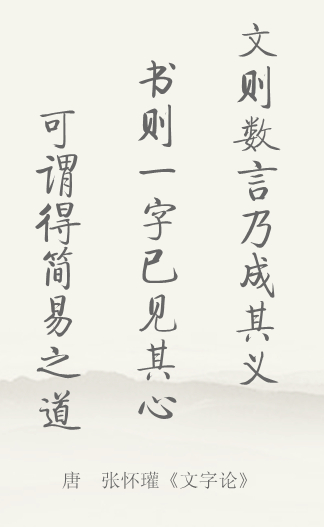 文则数言乃成其义
书则一字已见其心
可谓得简易之道
唐　张怀瓘《文字论》